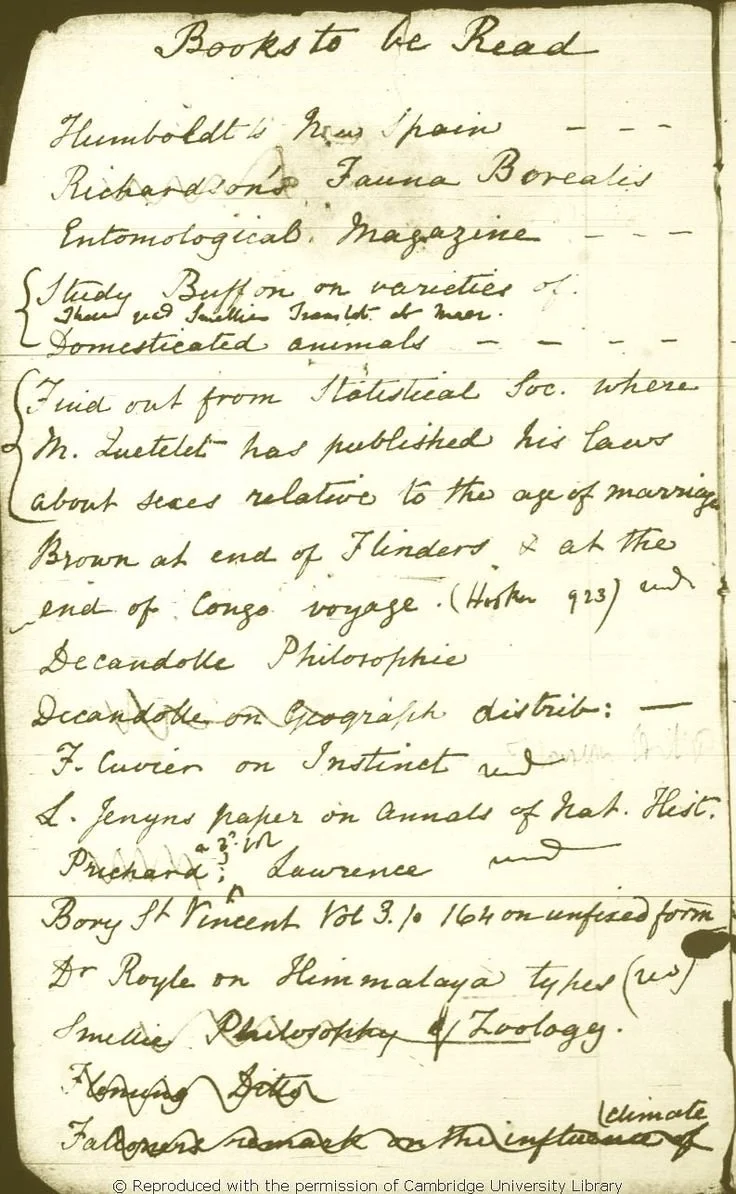 Books to be Read
Humboldt's New Spain — — —
Richardson's Fauna Borealis
Entomological Magazine — — —
Study Buffon on varieties of
Smellie Translat. at Maer.
Domesticated animals — — — — —
Find out from Statistical Soc. where
M. Quetelet has published his laws
about sexes relative to the age of marriage
Brown at end of Flinders & at the
end of Congo voyage. (Hooker 923) read
Decandolle Philosophie
Decandolle on Geograph distrib: —
F. Cuvier on Instinct read
L. Jenyns paper on Annals of Nat. Hist.
Prichard; a 3d vol Lawrence read
Bory St Vincent Vol 3. p 164 on unfixed form
Dr Royle on Himmalaya types (read)
Smellie Philosophy of Zoology.
Fleming Ditto
Falconers remark on the influence of climate
© Reproduced with the permission of Cambridge University Library